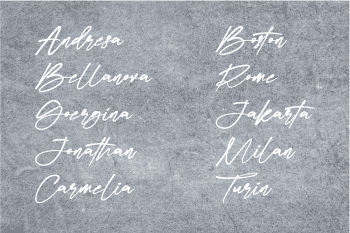 Andresa
Bellanova
Goergina
Jonathan
Carmelia
Boston
Rome
Jakarta
Milan
Turin